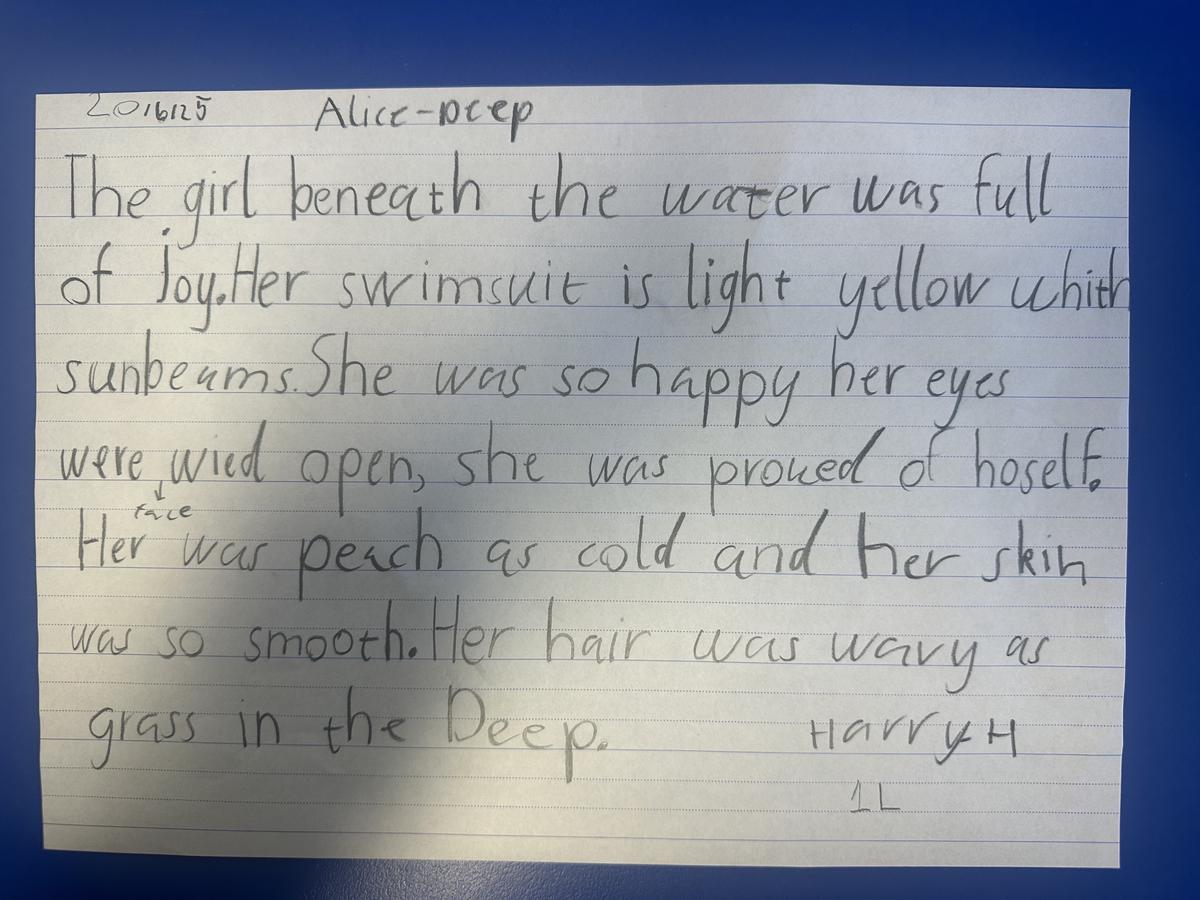 20/6/25 Alice-Deep
The girl beneath the water was full
of joy. Her swimsuit is light yellow whith
sunbeams. She was so happy her eyes
were wied open, she was proued of hoself.
face
Her was peach as cold and her skin
was so smooth. Her hair was wavy as
grass in the Deep. Harry H
1L